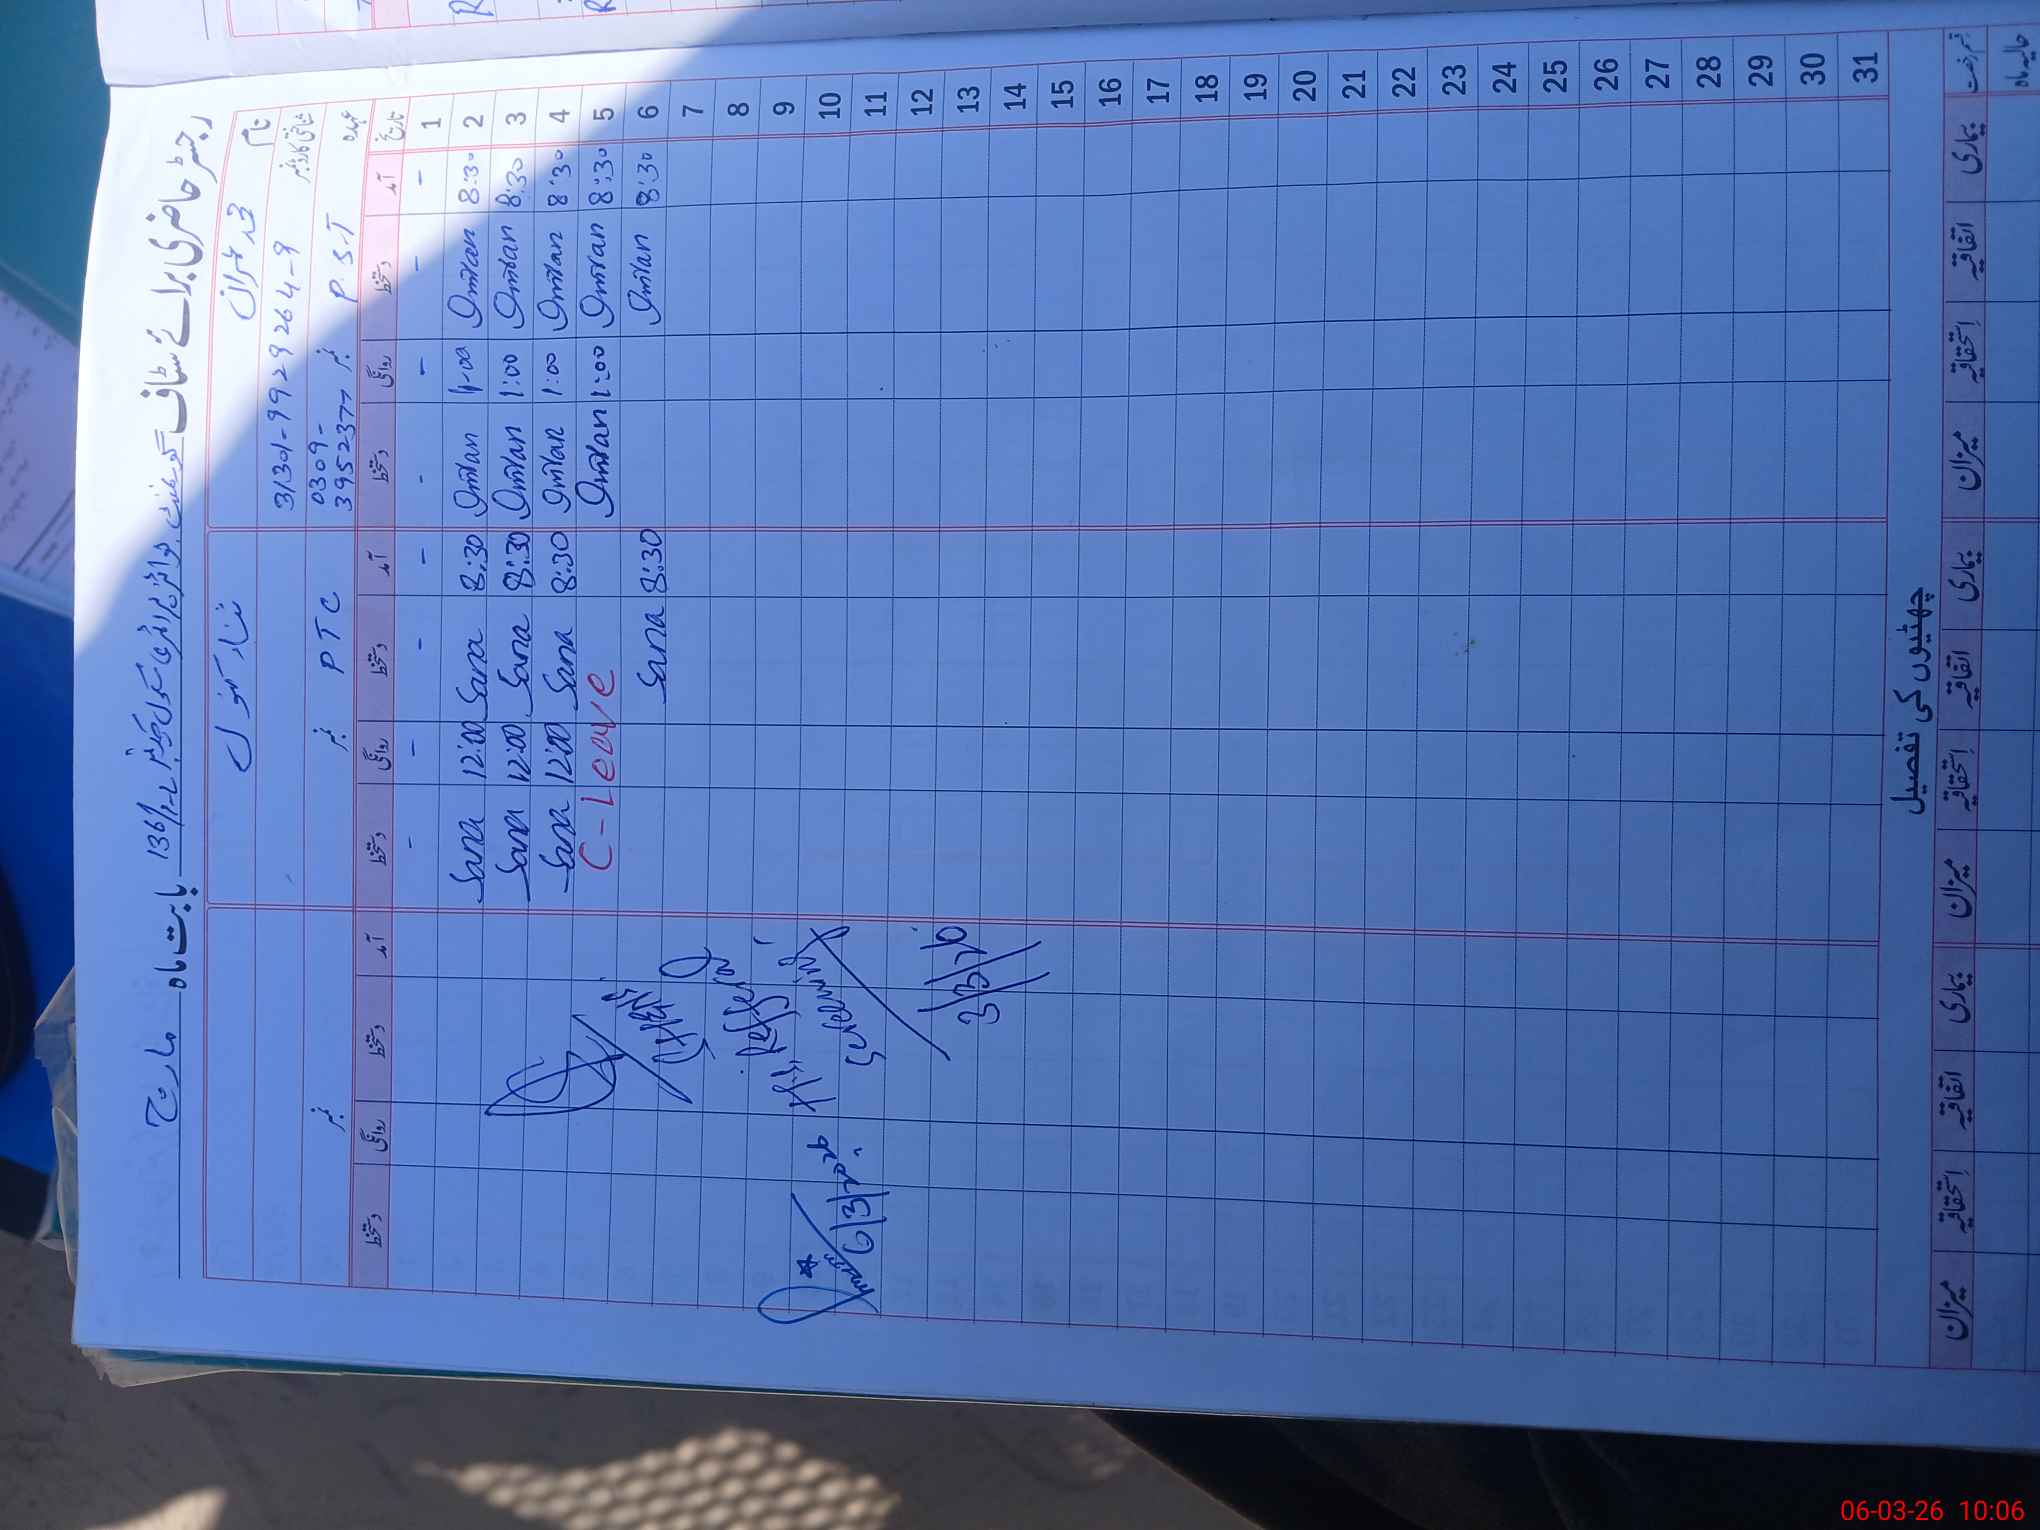 رجسٹر حاضری برائے سٹاف گورنمنٹ بوائز پرائمری سکول چک نمبر 136/1-L بابت ماہ مارچ
نام محمد عمران
شناختی کارڈ نمبر 31301-9929264-9
عہدہ P.S.T نمبر 0309-
3952377
PTC نمبر
نمبر
تاریخ آمد دستخط روانگی دستخط آمد دستخط روانگی دستخط آمد دستخط روانگی دستخط
1 - - - - - - - -
2 8:30 Imran 1:00 Imran 8:30 Sana 12:00 Sana
3 8:30 Imran 1:00 Imran 8:30 Sana 12:00 Sana
4 8:30 Imran 1:00 Imran 8:30 Sana 12:00 Sana
5 8:30 Imran 1:00 Imran C-Leave
6 8:30 Imran Sana 8:30
7
8
9
10
11
12
13
14
15
16
17
18
19
20
21
22
23
24
25
26
27
28
29
30
31
3/3/26
6/3/2026
چھٹیوں کی تفصیل
قسم رخصت بیماری اتفاقیہ استحقاقیہ میزان بیماری اتفاقیہ استحقاقیہ میزان بیماری اتفاقیہ استحقاقیہ میزان
حالیہ ماہ
06-03-26 10:06